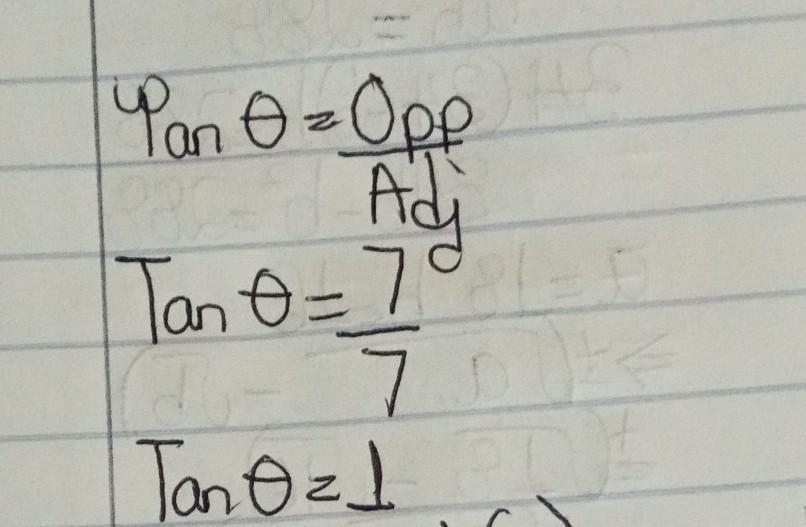 Tan θ = Opp
Adj
Tan θ = 7
7
Tan θ = 1